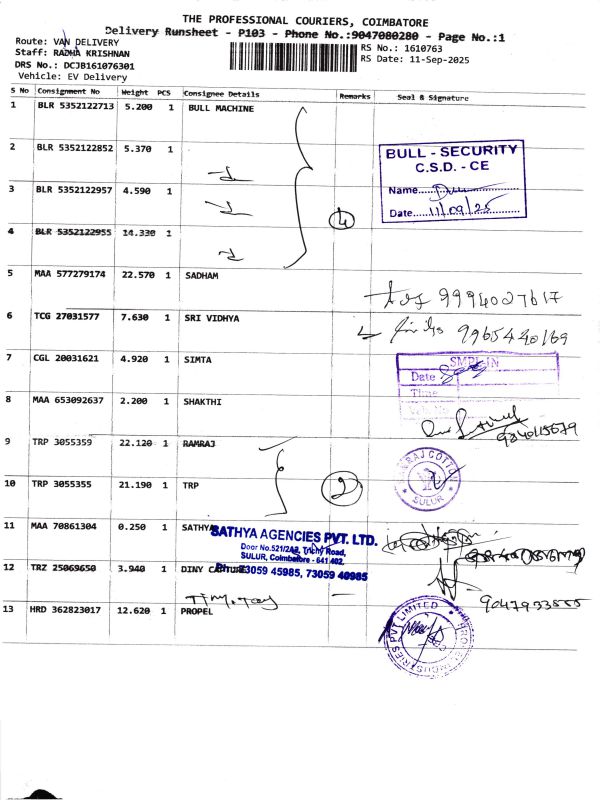 THE PROFESSIONAL COURIERS, COIMBATORE
Delivery Runsheet - P103 - Phone No.:9047080280 - Page No.:1
Route: VAN DELIVERY
Staff: RADHA KRISHNAN
DRS No.: DCJB161076301
Vehicle: EV Delivery
RS No.: 1610763
RS Date: 11-Sep-2025
S No Consignment No Weight PCS Consignee Details Remarks Seal & Signature
1 BLR 5352122713 5.200 1 BULL MACHINE
2 BLR 5352122852 5.370 1
BULL - SECURITY
C.S.D. - CE
3 BLR 5352122957 4.590 1
Name
Date 11/09/25
4
4 BLR 5352122955 14.330 1
5 MAA 577279174 22.570 1 SADHAM
9994027617
6 TCG 27031577 7.630 1 SRI VIDHYA
9965440169
7 CGL 20031621 4.920 1 SIMTA
SMPL-IN
Date
Time
8 MAA 653092637 2.200 1 SHAKTHI
9840115679
9 TRP 3055359 22.120 1 RAMRAJ
RAMRAJ COTTON
SULUR
10 TRP 3055355 21.190 1 TRP
2
11 MAA 70861304 0.250 1 SATHYA
SATHYA AGENCIES PVT. LTD.
Door No.521/2A2, Trichy Road,
SULUR, Coimbatore - 641 402.
Ph: 73059 45985, 73059 40985
12 TRZ 25069650 3.940 1 DINY CAPTURE
9047933555
13 HRD 362823017 12.620 1 PROPEL
PROPEL INDUSTRIES PVT LIMITED